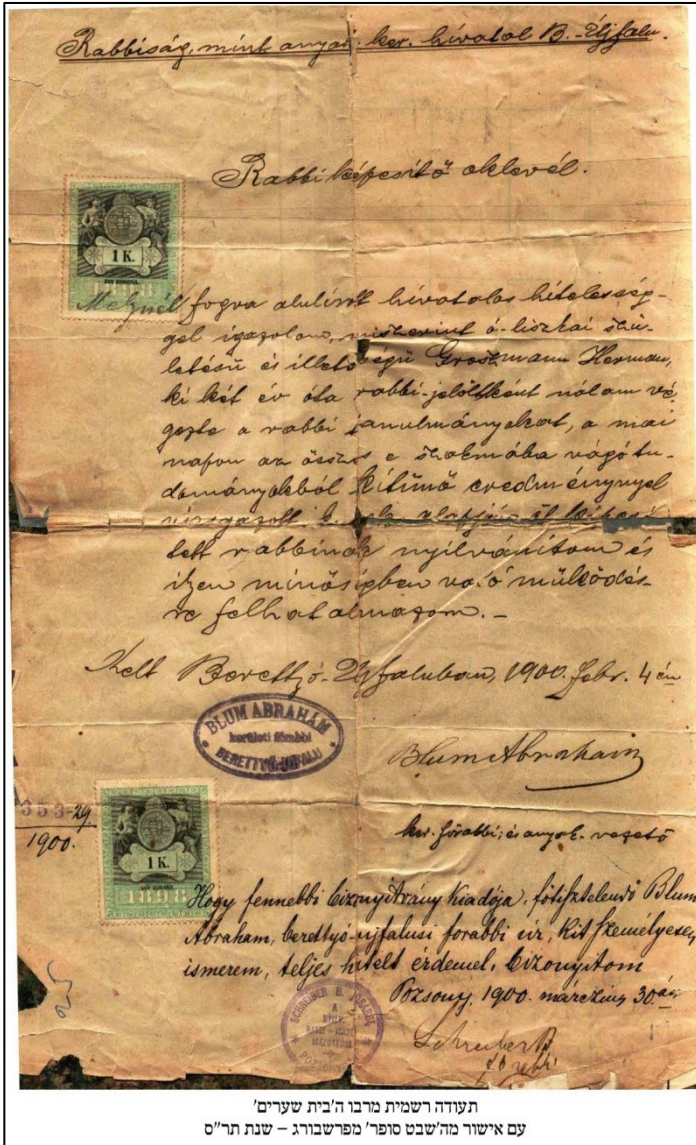 Rabbiság, mint anyak. ker. hivatal B.-Ujfalu.
Rabbiképesitő oklevél.
1 K.
EGY KORONA
1898
Melynél fogva alulirott hivatalos hitelesség-
gel igazolom, miszerint ó-liszkai szü-
letésü és illetőségü Groszmann Herman,
ki két év óta rabbi-jelöltként nálam vé-
gezte a rabbi tanulmányokat, a mai
napon az összes e szakmába vágó tu-
dományokból kitünő eredménynyel
vizsgázott alapján őt képesi
tett rabbinak nyilvánitom és
ilyen minőségben való müködés-
re felhatalmazom. –
Kelt Berettyó-Ujfaluban, 1900. febr. 4én
BLUM ABRAHÁM
kerületi főrabbi
BERETTYÓ-UJFALU
Blum Abraham
ker. főrabbi, és anyak. vezető
353-29
1900.
1 K.
EGY KORONA
1898
Hogy fennebbi bizonyitvány kiadója, főtisztelendő Blum
Abraham, berettyó-ujfalusi forabbi úr, kit személyesen
ismerem, teljes hitelt érdemel, bizonyitom
Pozsony, 1900. márczius 30án
SCHREIBER B. FŐRABBI
POZSONY
Schreiber B.
főrabbi
תעודה רשמית מרבו ה'בית שערים'
עם אישור מה'שבט סופר' מפרשבורג – שנת תר"ס